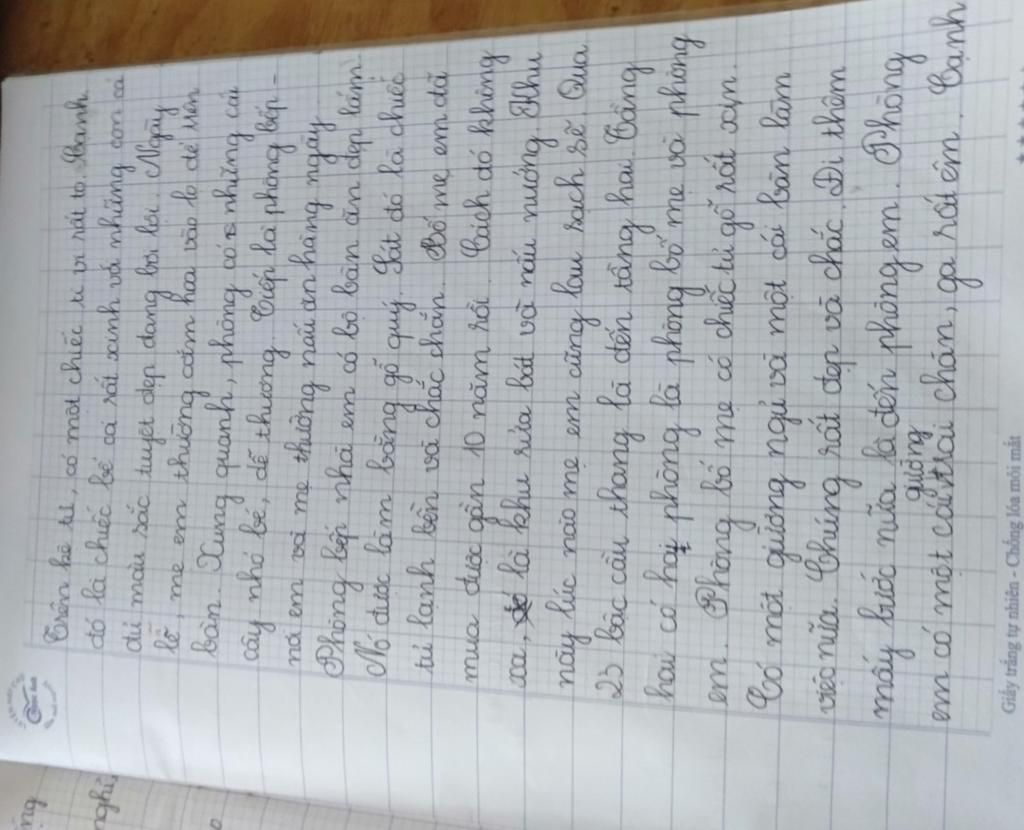 Trên kê ti, có một chiếc ti vi rất to. Cạnh
đó là chiếc bể cá rất xinh và những con cá
đủ màu sắc tuyệt đẹp đang bơi lội. Ngày
lễ, mẹ em thường cắm hoa vào lọ để trên
bàn. Xung quanh, phòng có những cái
cây nhỏ bé, dễ thương. Tiếp là phòng bếp -
nơi em và mẹ thường nấu ăn hàng ngày.
Phòng bếp nhà em có bộ bàn ăn đẹp lắm.
Nó được làm bằng gỗ quý. Sát đó là chiếc
tủ lạnh bền và chắc chắn. Bố mẹ em đã
mua được gần 10 năm rồi. Cách đó không
xa, là khu rửa bát và nấu nướng. Khu
này lúc nào mẹ em cũng lau sạch sẽ. Qua
23 bậc cầu thang là đến tầng hai. Tầng
hai có hai phòng là phòng bố mẹ và phòng
em. Phòng bố mẹ có chiếc tủ gỗ rất xịn.
Có một giường ngủ và một cái bàn làm
việc nữa. Chúng rất đẹp và chắc. Đi thêm
mấy bước nữa là đến phòng em. Phòng
giường
em có một cái trải chăn, ga rất êm. Cạnh
Giấy trắng tự nhiên - Chống lóa mỏi mắt
ng
nghi